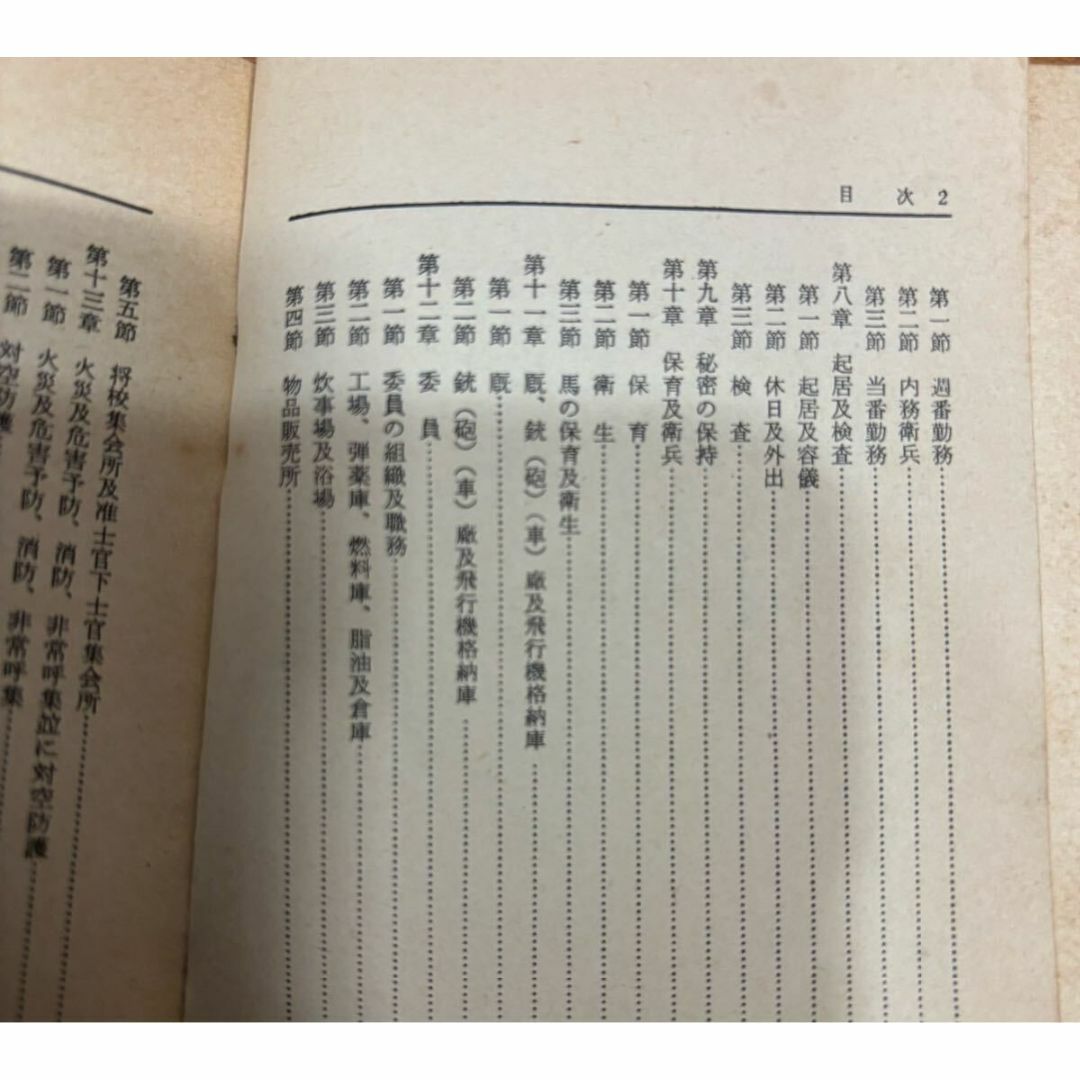 目次 2
第一節 週番勤務
第二節 内務衛兵
第三節 当番勤務
第八章 起居及検査
第一節 起居及容儀
第二節 休日及外出
第三節 検査
第九章 秘密の保持
第十章 保育及衛兵
第一節 保育
第二節 衛生
第三節 馬の保育及衛生
第十一章 厩、銃(砲)(車)廠及飛行機格納庫
第一節 厩
第二節 銃(砲)(車)廠及飛行機格納庫
第十二章 委員
第一節 委員の組織及職務
第二節 工場、弾薬庫、燃料庫、脂油及倉庫
第三節 炊事場及浴場
第四節 物品販売所
第五節 将校集会所及准士官下士官集会所
第十三章 火災及危害予防、消防、非常呼集並に対空防護
第一節 火災及危害予防、消防、非常呼集
第二節 対空防護